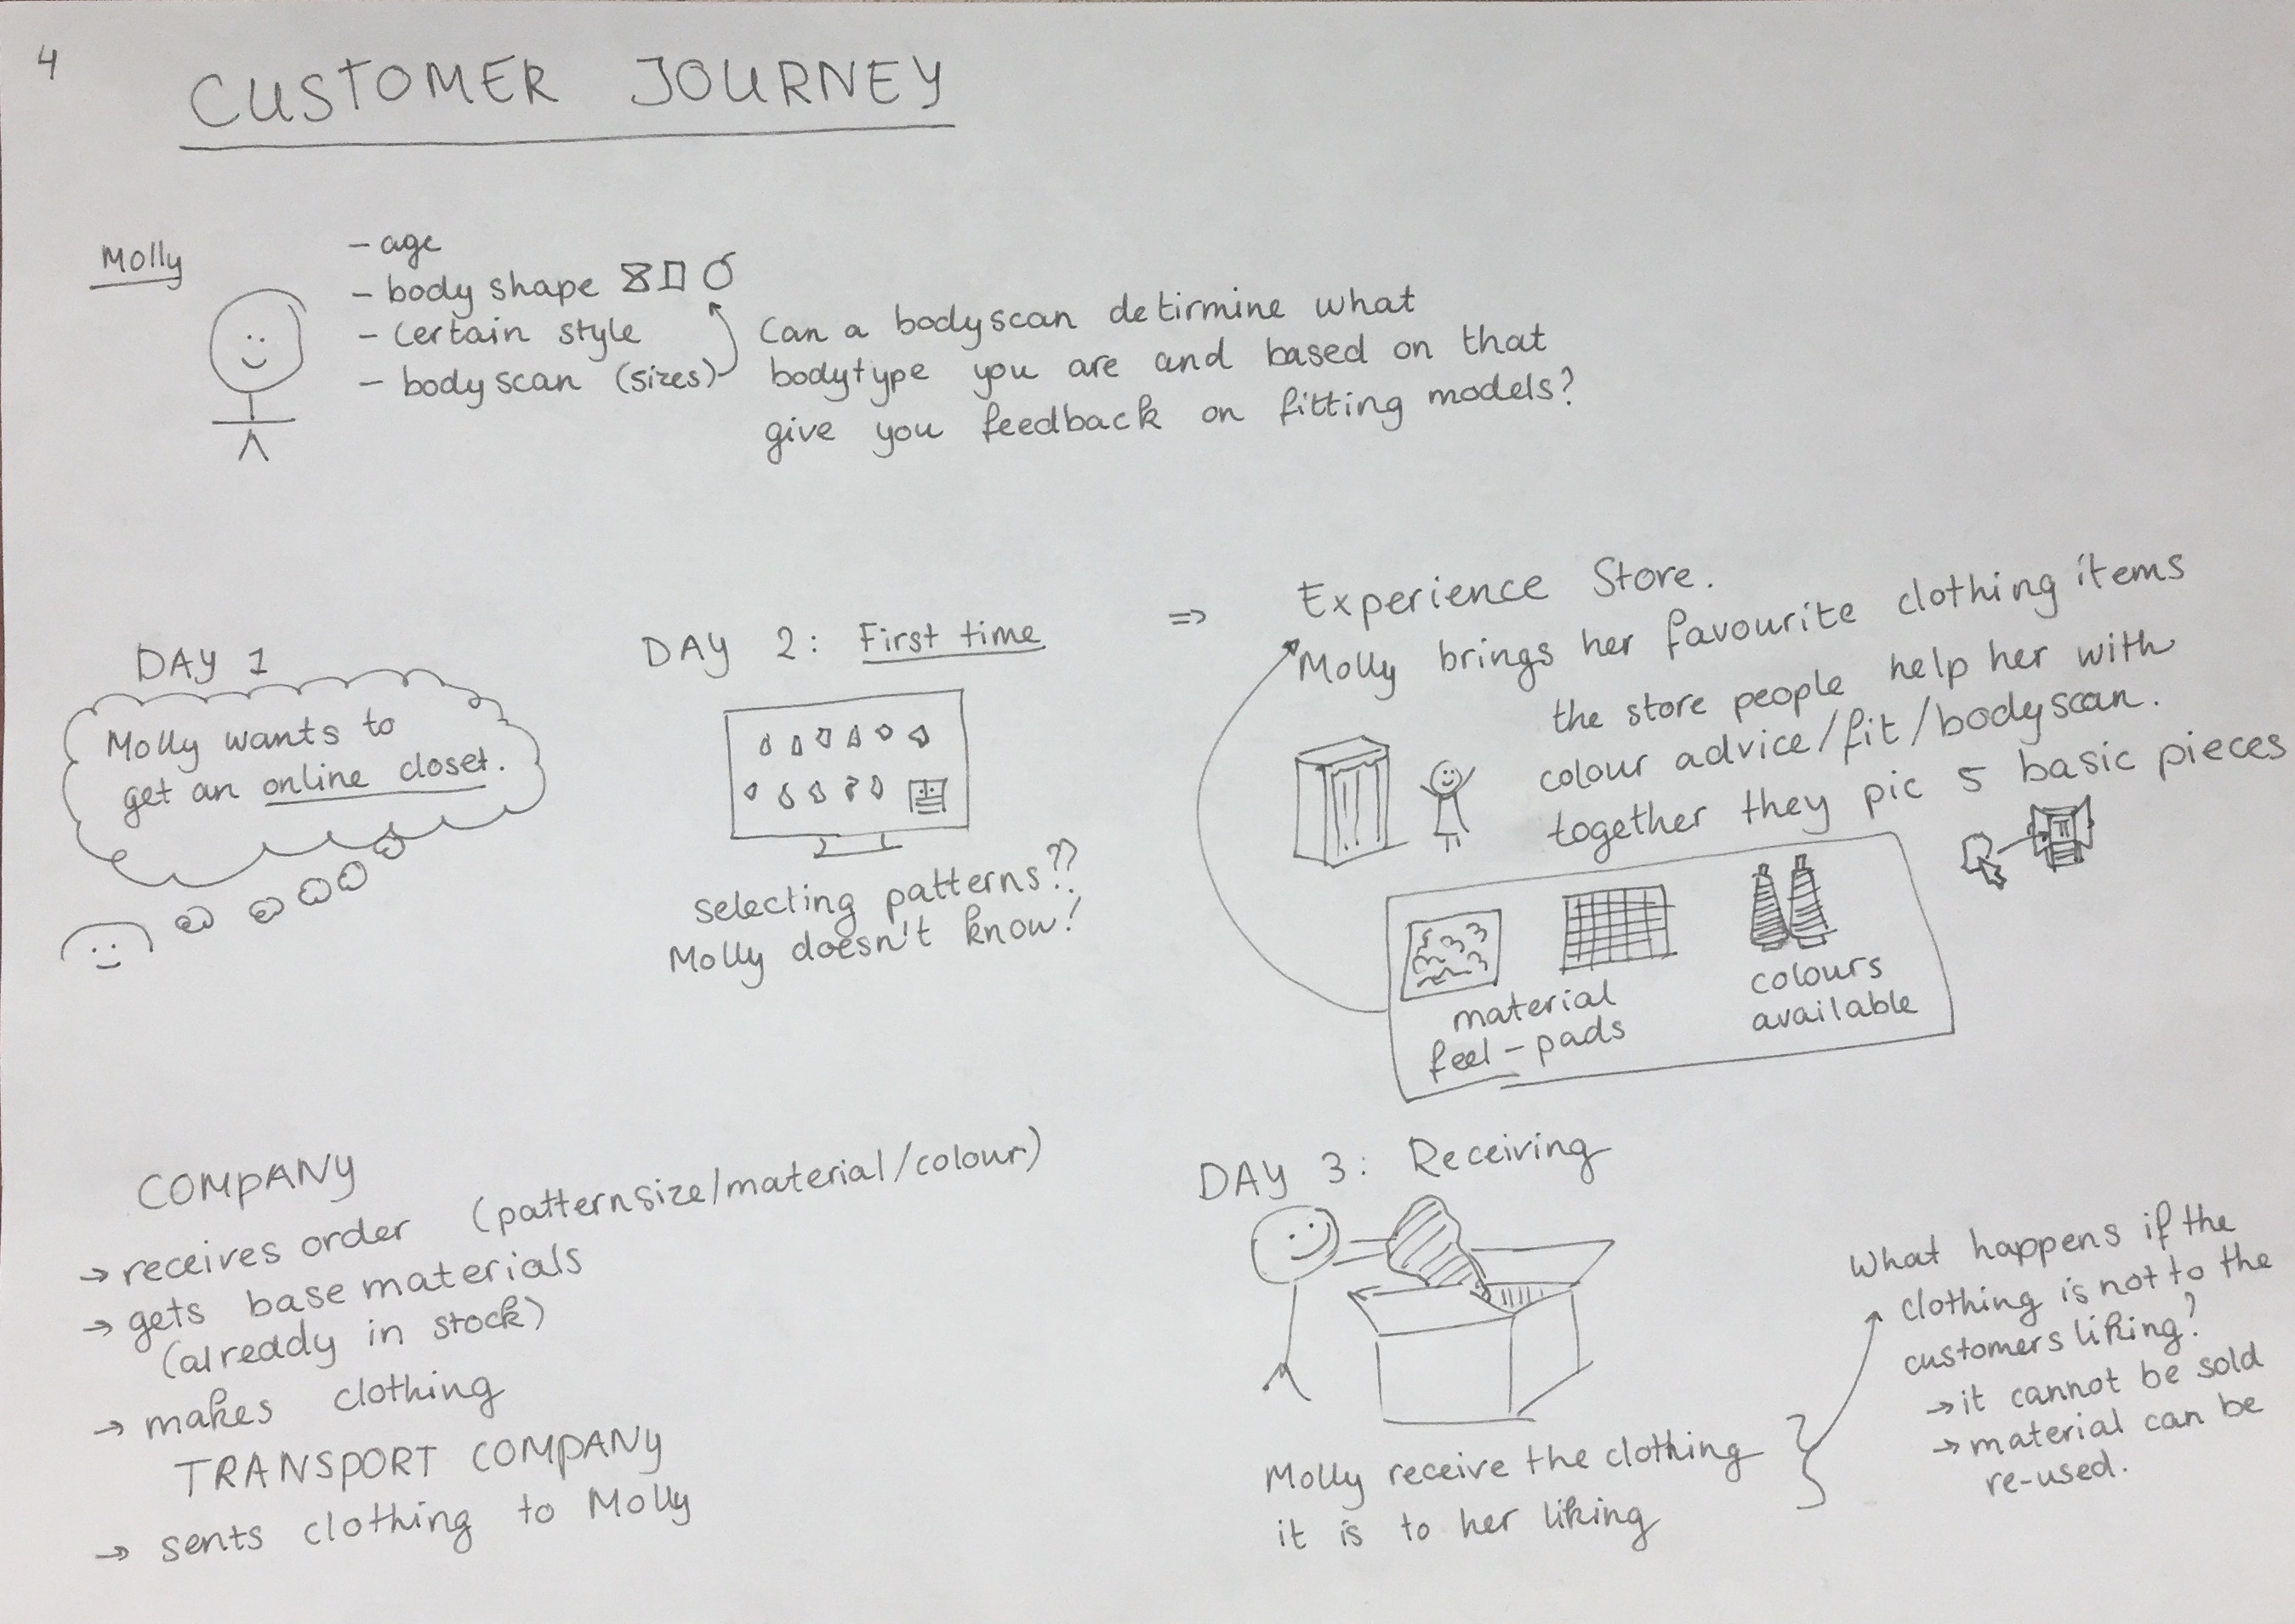 4
CUSTOMER JOURNEY
Molly
- age
- body shape
- certain style
- bodyscan (sizes)
Can a bodyscan detirmine what
bodytype you are and based on that
give you feedback on fitting models?
DAY 1
Molly wants to
get an online closet.
DAY 2: First time
selecting patterns??
Molly doesn't know!
=> Experience Store.
Molly brings her favourite clothing items
the store people help her with
colour advice/fit/bodyscan.
together they pic 5 basic pieces
material
feel-pads
colours
available
COMPANY
→ receives order (patternsize/material/colour)
→ gets base materials
(alreddy in stock)
→ makes clothing
TRANSPORT COMPANY
→ sents clothing to Molly
DAY 3: Receiving
Molly receive the clothing
it is to her liking
What happens if the
clothing is not to the
customers liking?
→ it cannot be sold
→ material can be
re-used.